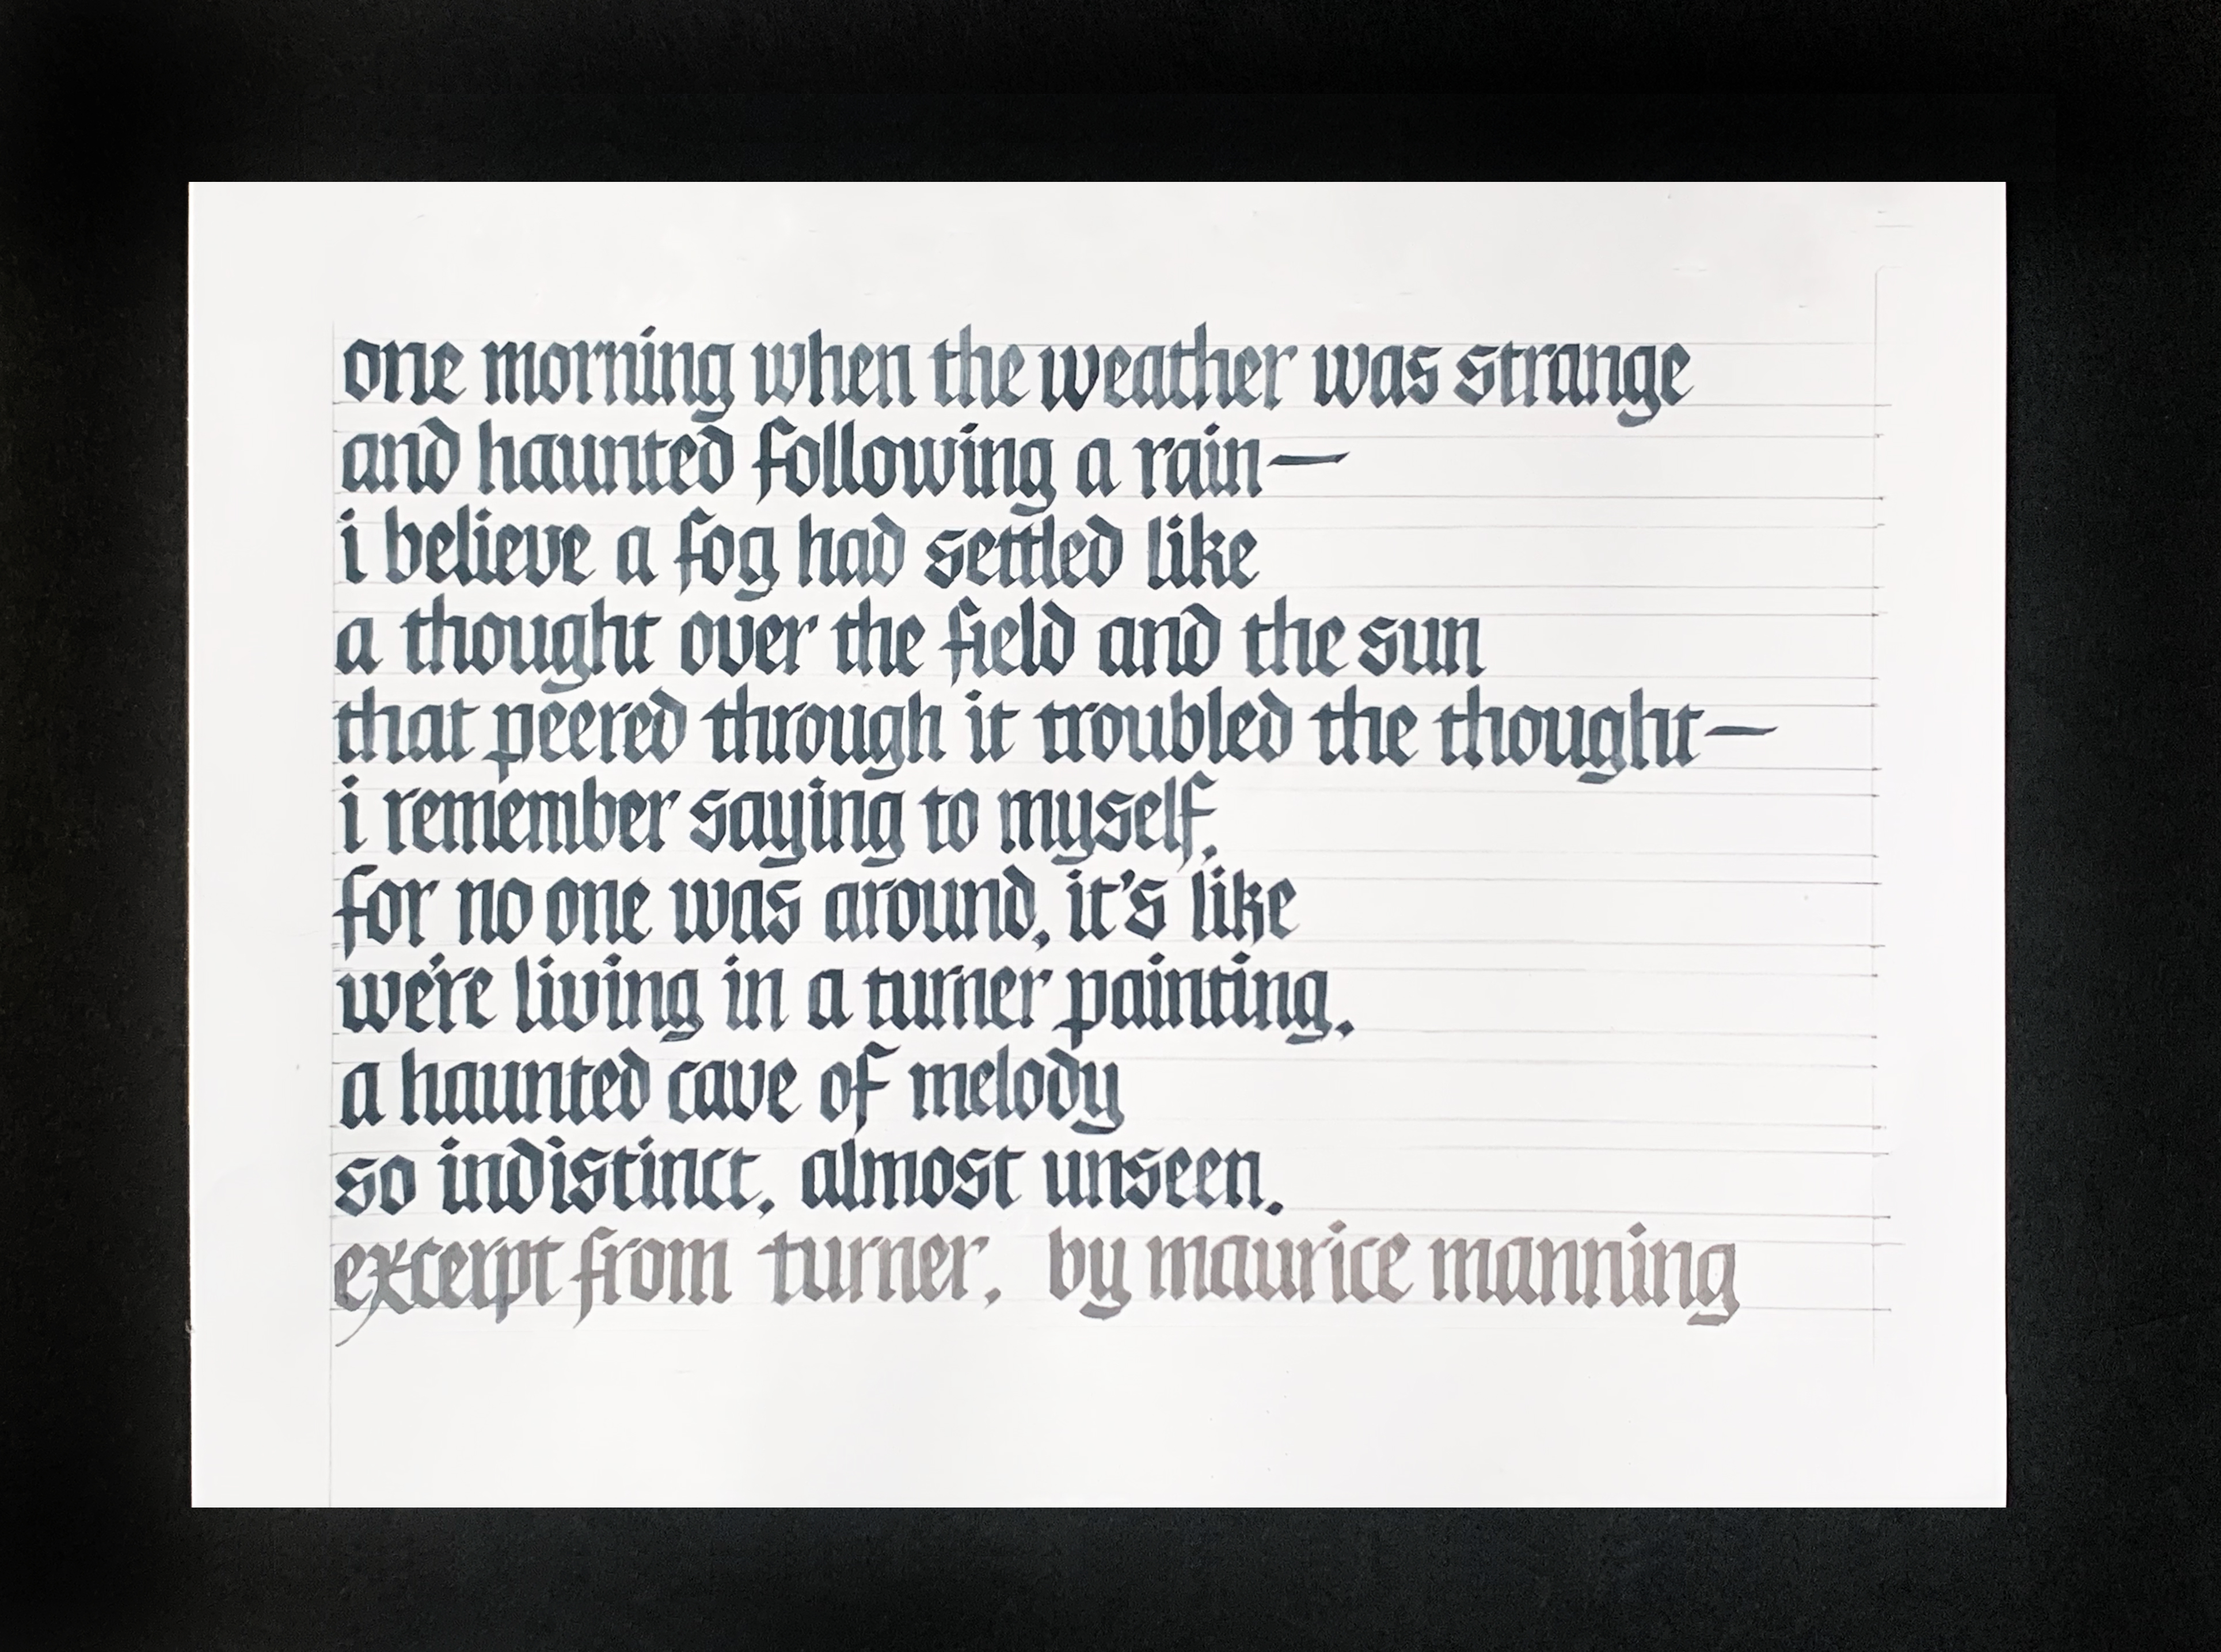 one morning when the weather was strange
and haunted following a rain—
i believe a fog had settled like
a thought over the field and the sun
that peered through it troubled the thought—
i remember saying to myself,
for no one was around, it's like
we're living in a turner painting,
a haunted cave of melody
so indistinct, almost unseen.
excerpt from turner, by maurice manning